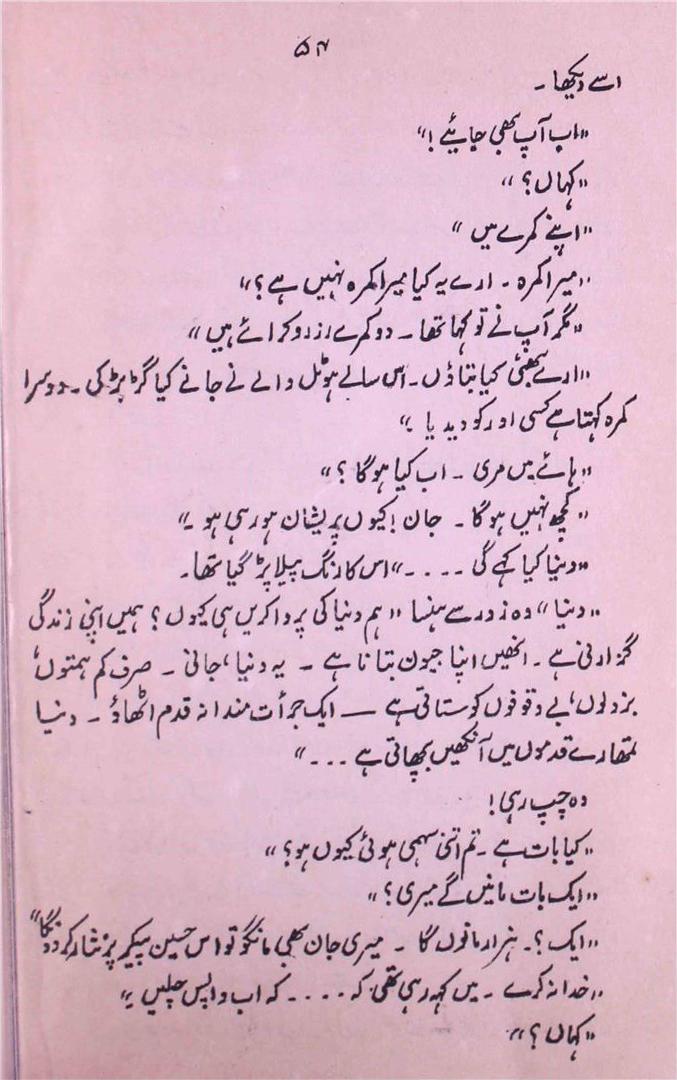 ۵۴
اسے دیکھا۔
"اب آپ بھی جائیے!"
"کہاں؟"
"اپنے کمرے میں"
"میرا کمرہ۔ ارے یہ کیا میرا کمرہ نہیں ہے؟"
"مگر آپ نے تو کہا تھا۔ دو کمرے رزرو کرائے ہیں"
"ارے بھئی کیا بتاؤں۔ اس سالے ہوٹل والے نے جانے کیا گڑبڑ کی۔ دوسرا
کمرہ کہتا ہے کسی اور کو دیدیا۔"
"ہائے میں مری۔ اب کیا ہوگا؟"
"کچھ نہیں ہوگا۔ جان! کیوں پریشان ہو رہی ہو۔"
"دنیا کیا کہے گی ۔۔۔۔" اس کا رنگ پیلا پڑ گیا تھا۔
"دنیا" وہ زور سے ہنسا "ہم دنیا کی پروا کریں ہی کیوں؟ ہمیں اپنی زندگی
گزارنی ہے۔ انھیں اپنا جیون بتانا ہے۔ یہ دنیا، جانی۔ صرف کم ہمتوں،
بزدلوں، بے وقوفوں کو ستاتی ہے — ایک جرأت مندانہ قدم اٹھاؤ۔ دنیا
تمھارے قدموں میں آنکھیں بچھاتی ہے ۔۔۔"
وہ چپ رہی!
"کیا بات ہے۔ تم اتنی سہمی ہوئی کیوں ہو؟"
"ایک بات مانیں گے میری؟"
"ایک؟۔ ہزار مانوں گا۔ میری جان بھی مانگو تو اس حسین پیکر پر نثار کر دونگا"
"خدا نہ کرے۔ میں کہہ رہی تھی کہ ۔۔۔۔ کہ اب واپس چلیں۔"
"کہاں؟"